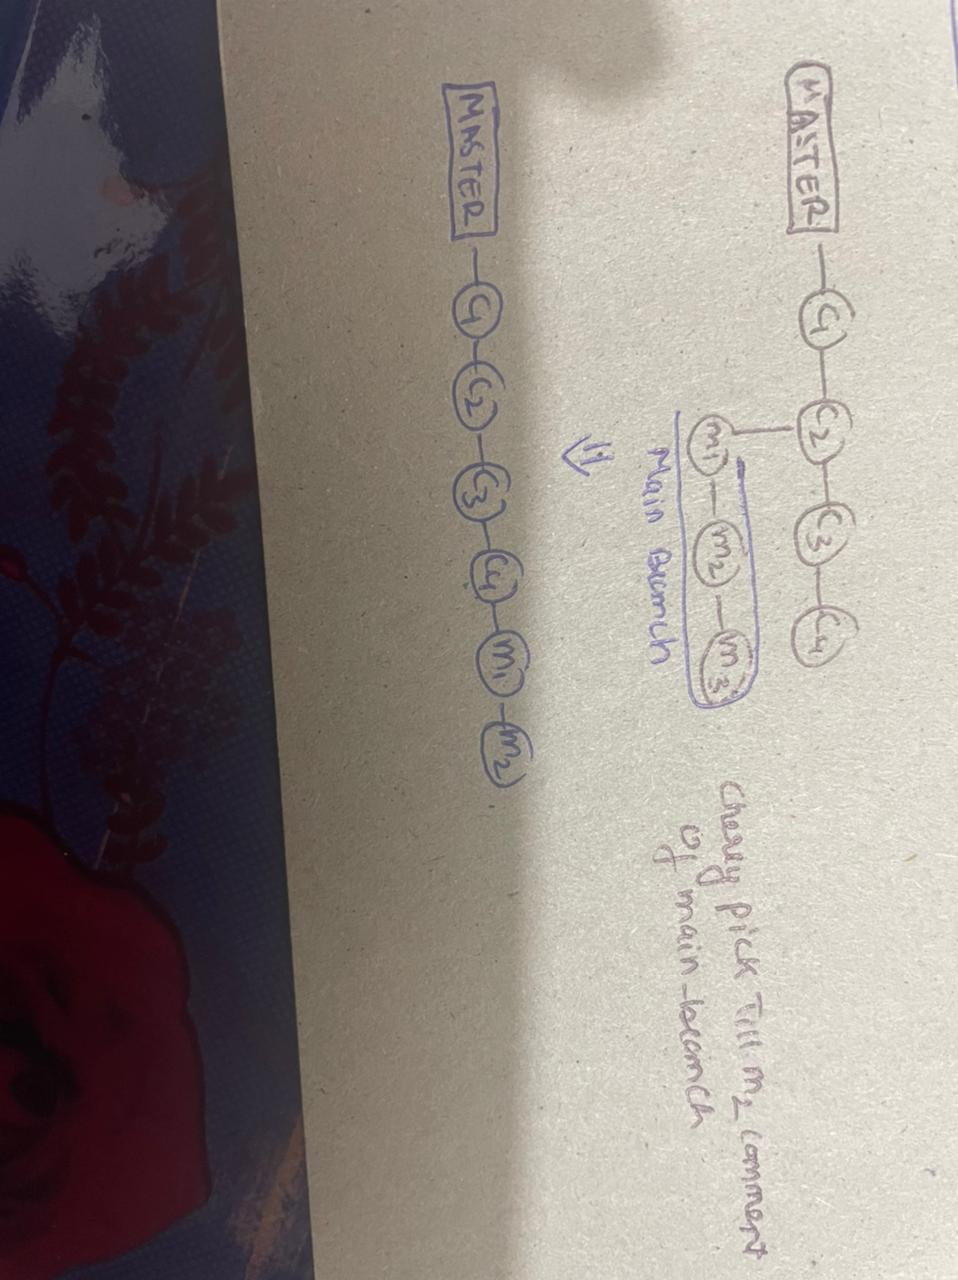 MASTER C1 C2 C3 C4
m1 m2 m3
Main Branch
Cherry pick Till m2 comment
of main-branch
⇓
MASTER C1 C2 C3 C4 m1 m2